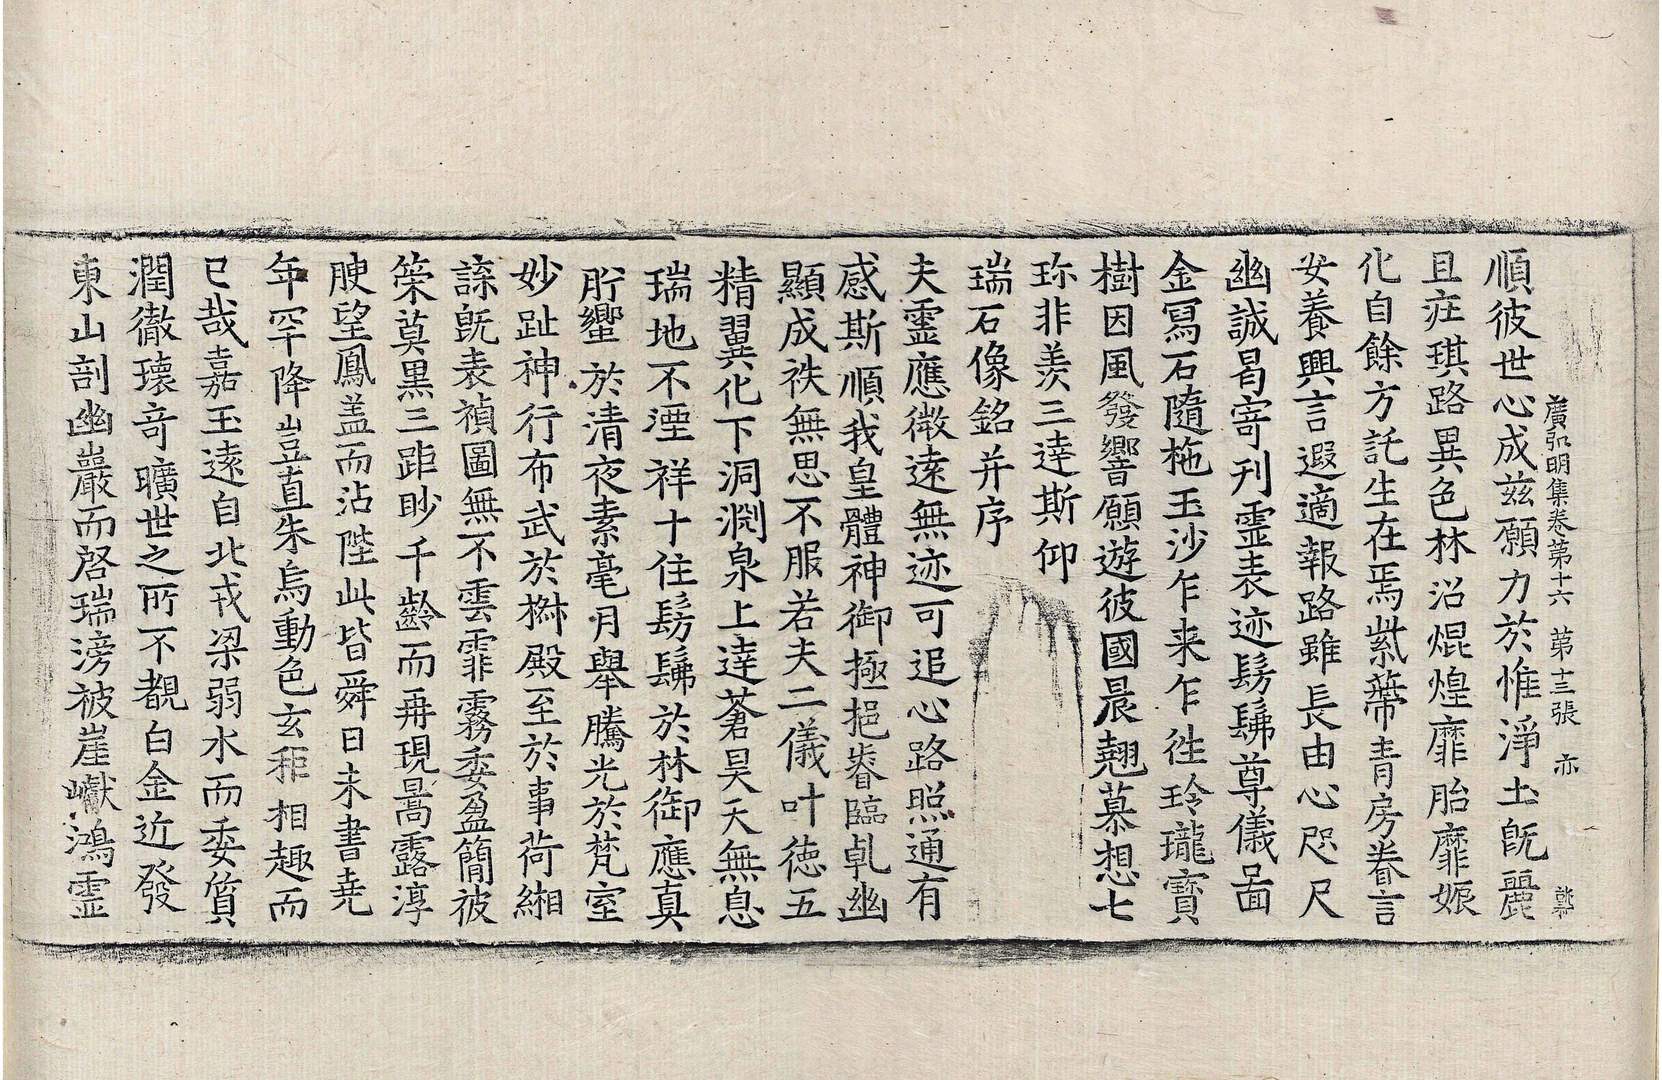 廣弘明集卷第十六　第十三張　亦
順彼世心成兹願力於惟淨土旣麗
且庄琪路異色林沼焜煌靡胎靡娠
化自餘方託生在焉紫蔕青房眷言
安養興言遐適報路雖長由心咫尺
幽誠曷寄刊靈表迹髣髴尊儀啚
金冩石隨拖玉沙乍来乍往玲瓏寳
樹因風發響願遊彼國晨翹慕想七
珎非羡三達斯仰
瑞石像銘并序
夫靈應微遠無迹可追心路照通有
感斯順我皇體神御極挹睠臨乹幽
顯成袟無思不服若夫二儀叶徳五
精翼化下洞淵泉上達蒼昊天無息
瑞地不湮祥十住髣髴於林御應真
肹蠁於清夜素毫月舉騰光於梵室
妙趾神行布武於椒殿至於事荷緗
諜旣表禎圖無不雲霏霧委盈簡彼
策莫黑三距眇千齡而再現暠露淳
腴望鳳盖而沾陛此皆舜日未書堯
年罕降豈直朱烏動色玄秬相趣而
已哉嘉玉遠自北戎梁弱水而委質
潤徹瓌竒曠世之所不覩白金近發
東山剖幽巖而啓瑞滂被崖巘鴻靈